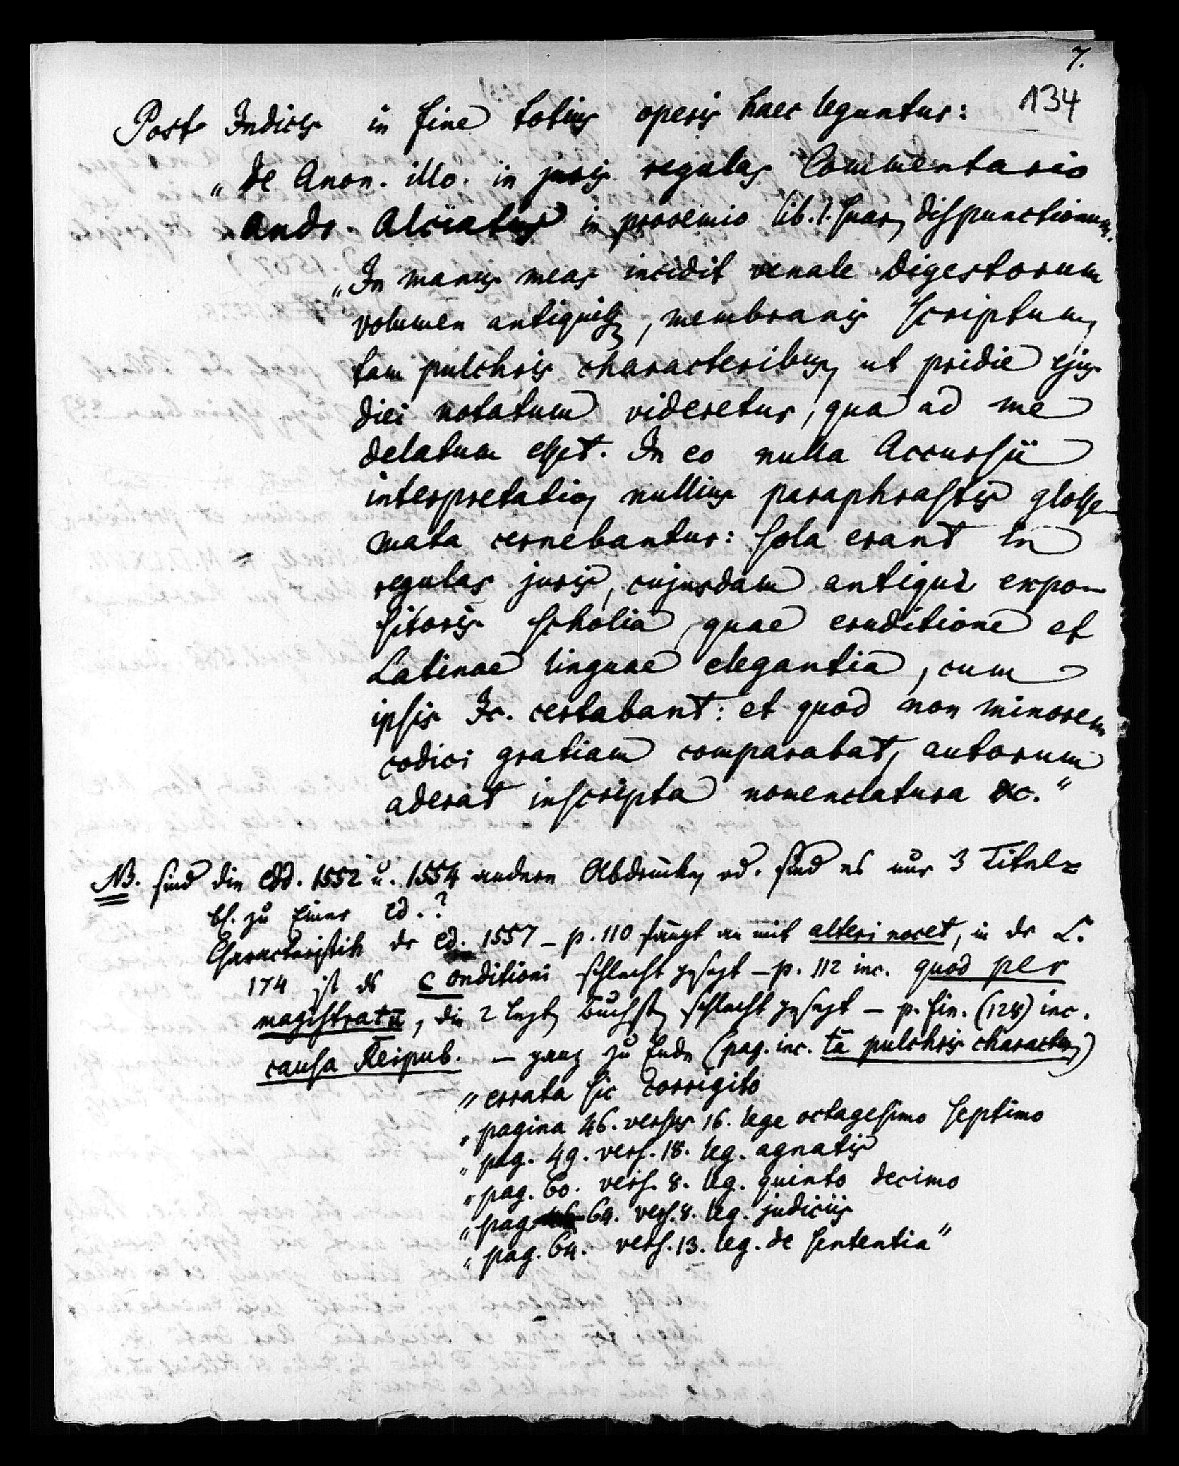 7.
134
Post Indices in fine totius operis haec leguntur:
„ de Anon. illo. in juris regulas Commentario
Andr. Alciatus in prooemio lib. 1. suar. dispunctionum.
„ In manus meas incidit venale Digestorum
volumen antiquis, membranis scriptum,
tam pulchris characteribus, ut pridie ejus
diei notatum videretur, qua ad me
delatum esset. In eo nulla Accursii
interpretatio, nullius paraphrastis glosse-
mata cernebantur: sola erant in
regulas juris, cujusdam antiqui expo-
sitoris scholia, quae eruditione et
Latinae linguae elegantia, cum
ipsis Jc. certabant: et quod non minorem
codici gratiam comparabat, autorum
aderat inscripta nomenclatura &c."
NB. sind die edd. 1552 u. 1554 andere Abdrucke, od. sind es nur 3 Titel=
bl. zu Einer ed.?
Characteristik dr ed. 1557 – p. 110 fängt an mit alteri nocet, in dr L.
174 ist ds conditioni schlecht gesezt – p. 112 inc. quod per
magistratū, die 2 lezt. Buchst. schlecht gesezt – p. fin. (128) inc.
causa Reipub. – ganz zu Ende (pag. inc. tā pulchris character.)
„ errata sic corrigito
„ pagina 46. versus 16. lege octagesimo septimo
„ pag. 49. vers. 18. leg. agnatis
„ pag. 60. vers. 8. leg. quinto decimo
„ pag. 64. vers. 8. leg. judiciis
„ pag. 64. vers. 13. leg. de sententia"